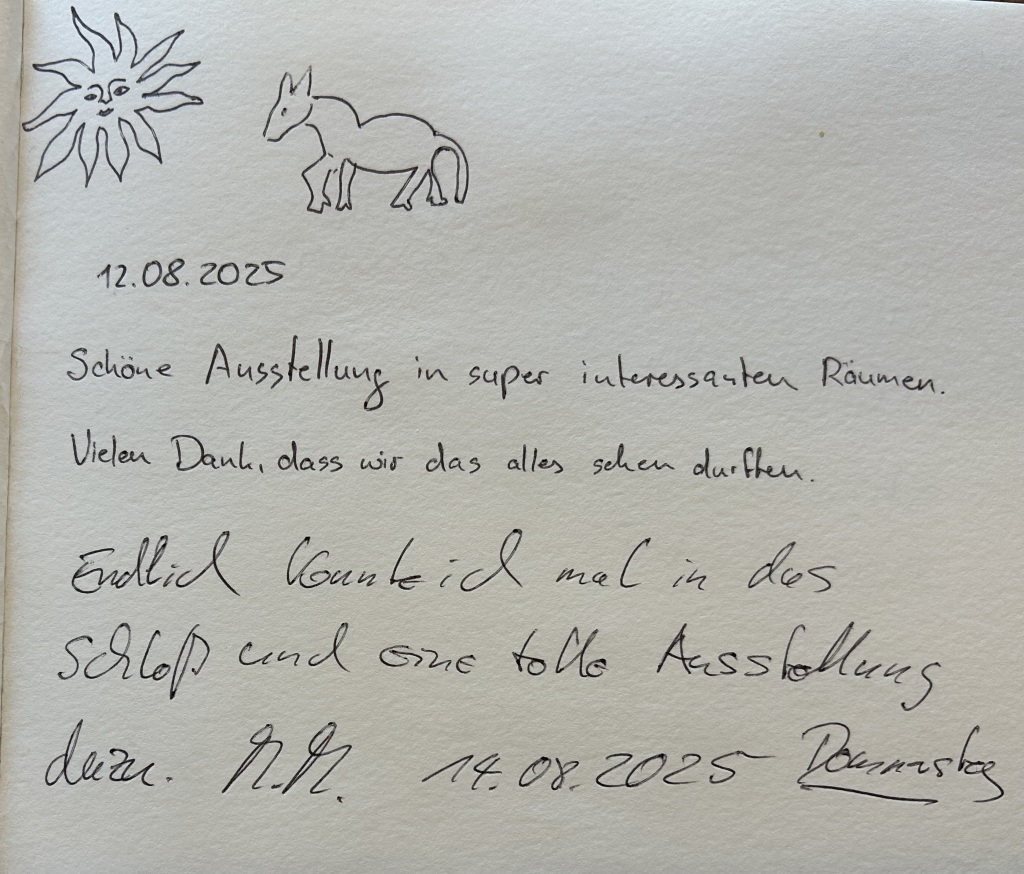 12.08.2025
Schöne Ausstellung in super interessanten Räumen.
Vielen Dank, dass wir das alles sehen durften.
Endlich konnte ich mal in das
Schloß und eine tolle Ausstellung
dazu. M.M. 14.08.2025 Donnerstag